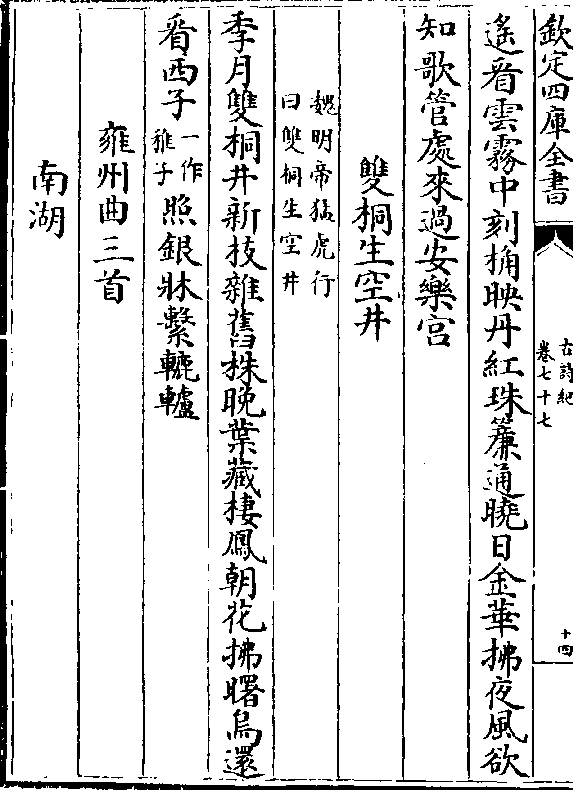 欽定四庫全書
古詩紀
卷七十七
十四
遙看雲霧中刻桷映丹紅珠簾通曉日金華拂夜風欲
知歌管處來過安樂宮
雙桐生空井
魏明帝猛虎行
曰雙桐生空井
季月雙桐井新枝雜舊株晚葉藏棲鳳朝花拂曙烏還
看西子一作稚子照銀牀繫轆轤
雍州曲三首
南湖